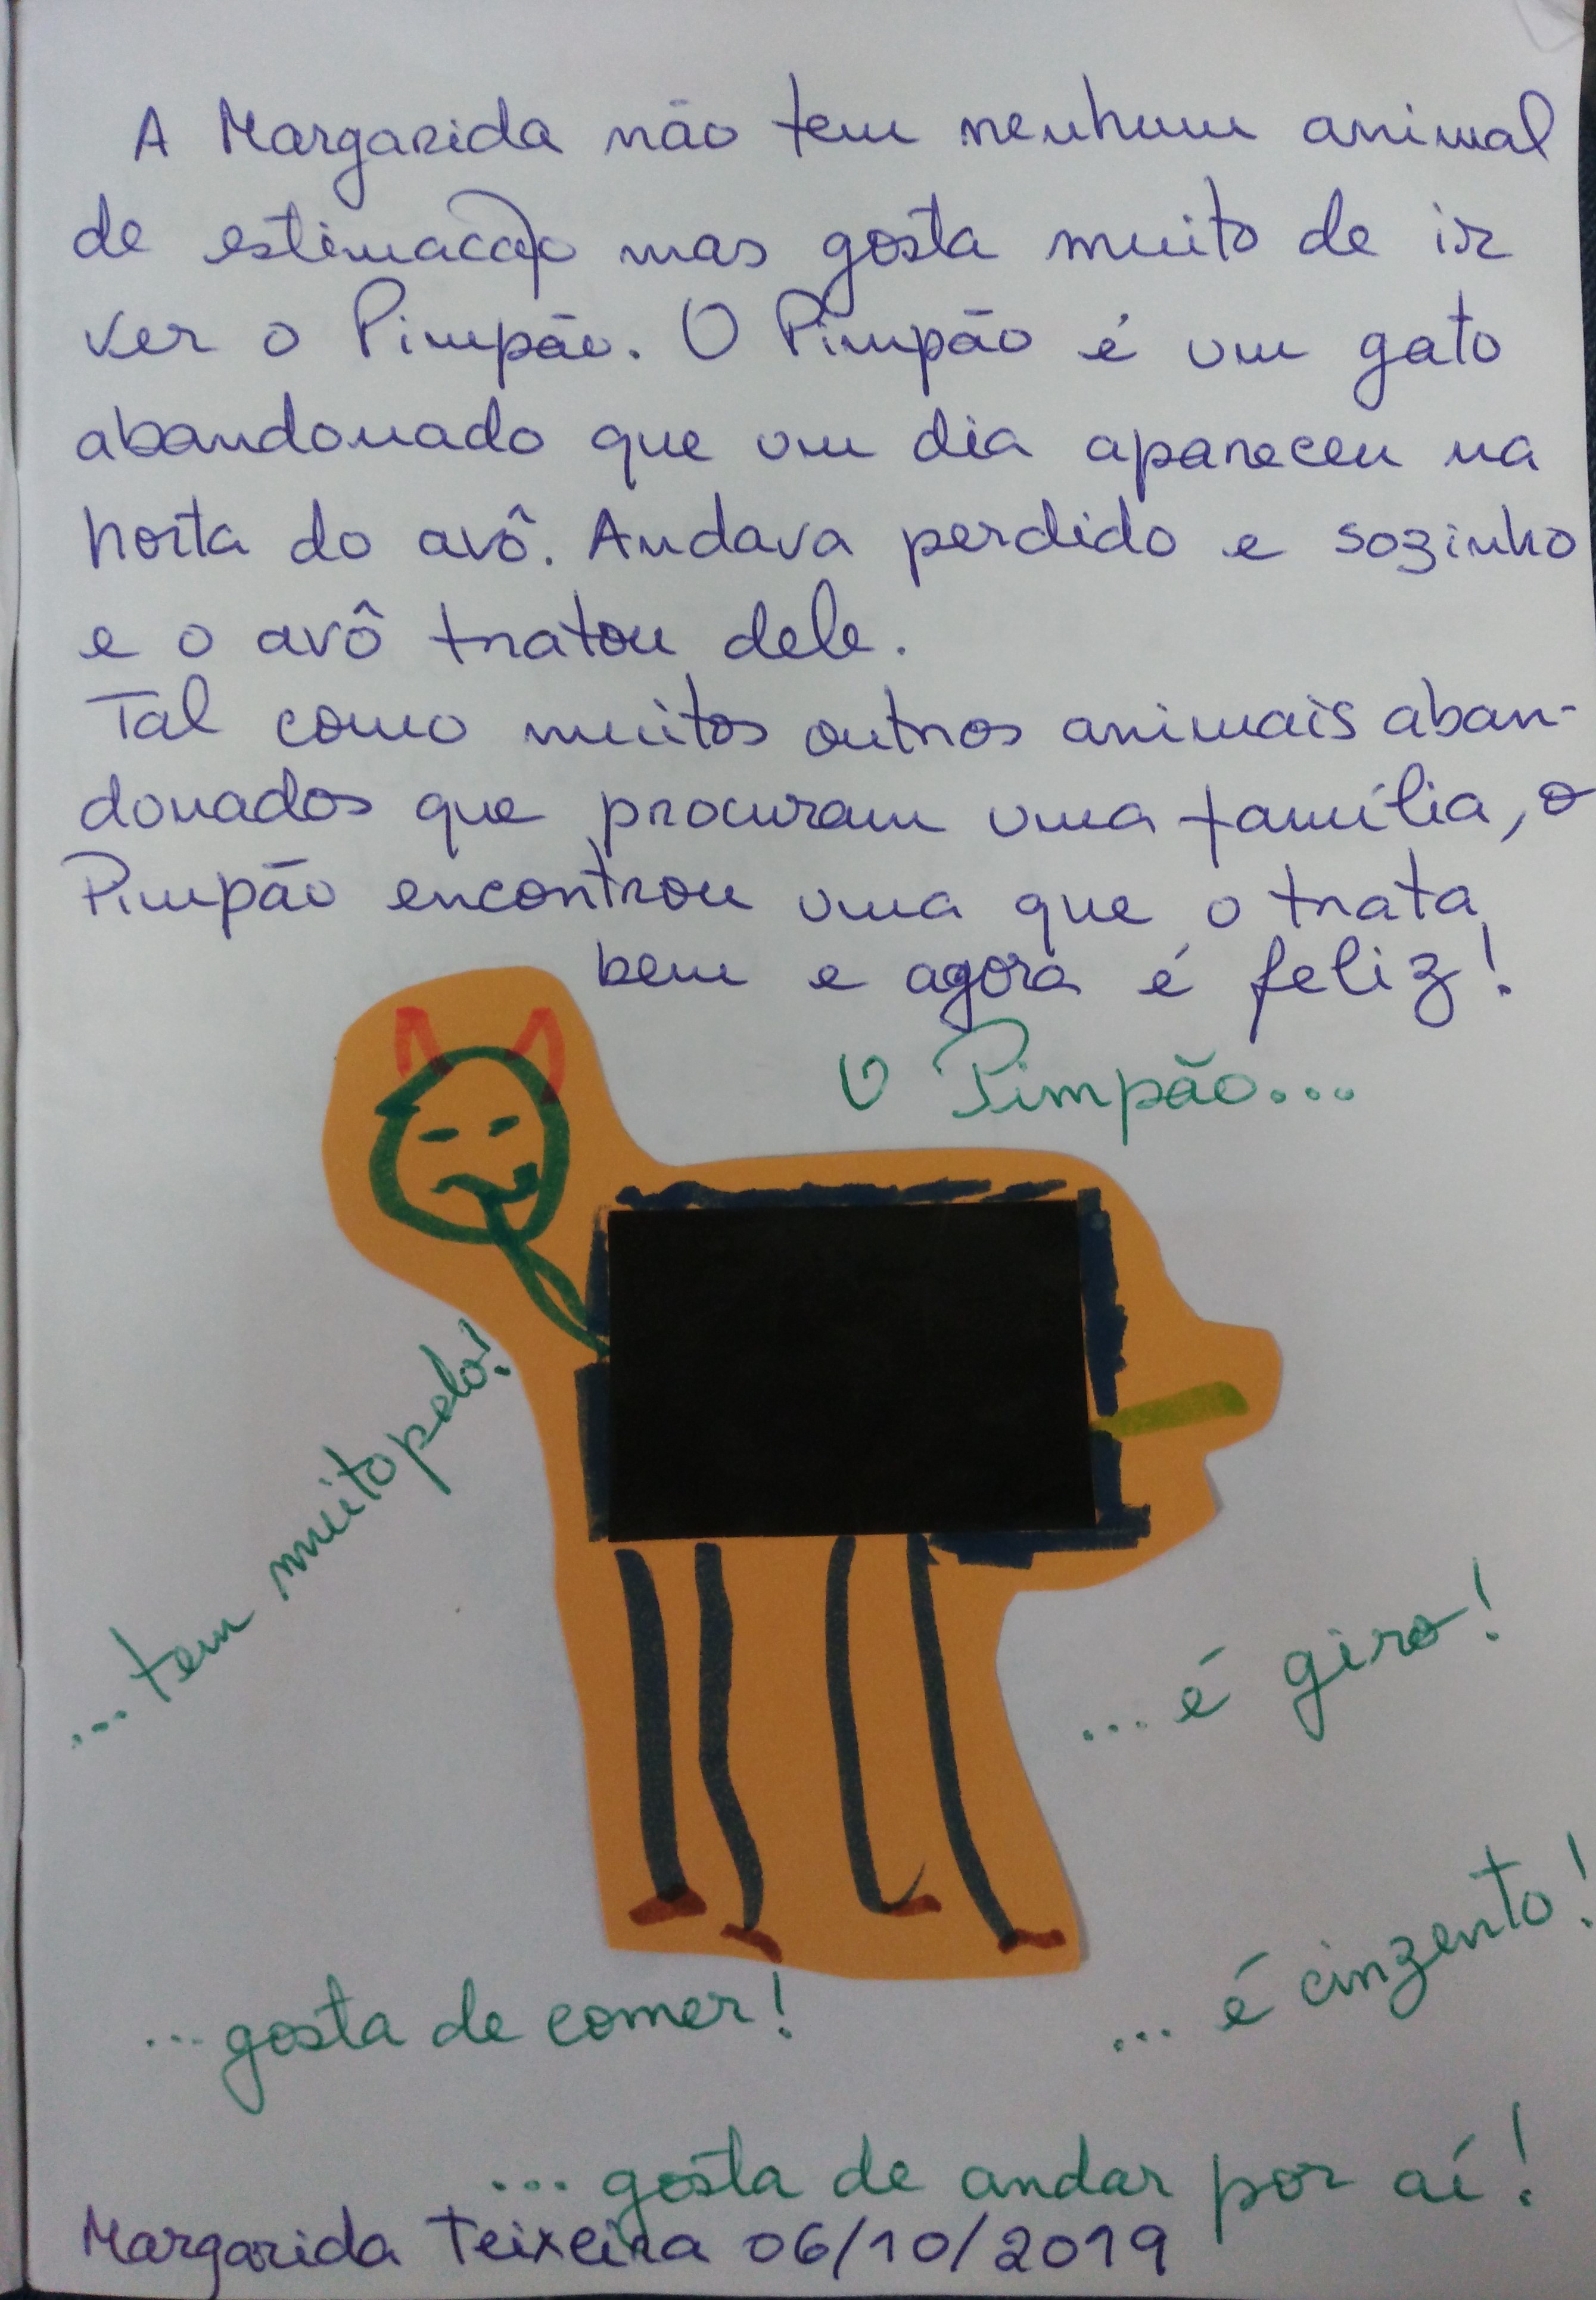 A Margarida não tem nenhum animal
de estimação mas gosta muito de ir
ver o Pimpão. O Pimpão é um gato
abandonado que um dia apareceu na
horta do avô. Andava perdido e sozinho
e o avô tratou dele.
Tal como muitos outros animais aban-
donados que procuram uma família, o
Pimpão encontrou uma que o trata
bem e agora é feliz!
O Pimpão...
...tem muito pelo!
...é giro!
...é cinzento!
...gosta de comer!
...gosta de andar por aí!
Margarida Teixeira 06/10/2019